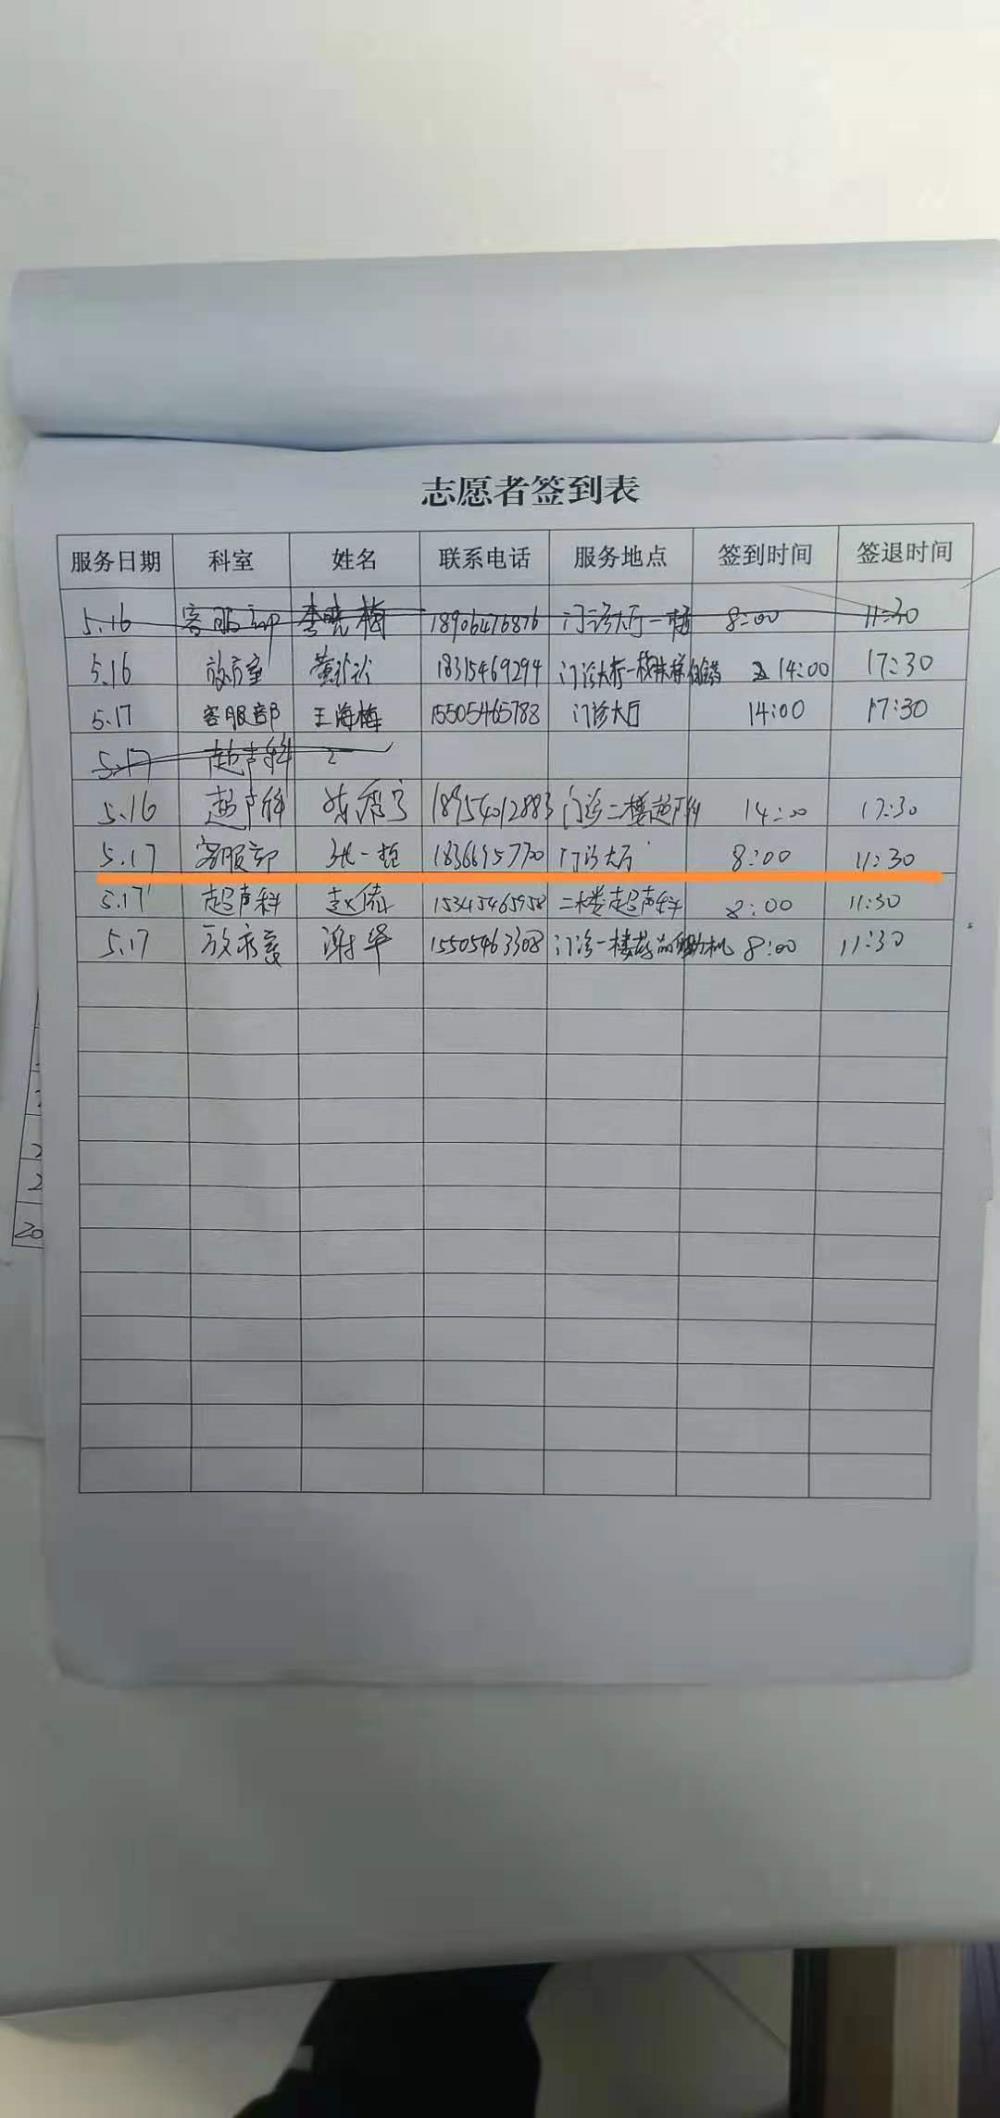 志愿者签到表
服务日期 科室 姓名 联系电话 服务地点 签到时间 签退时间
5.16 客服部 李晓梅 18906476876 门诊大厅一楼 8:00 11:30
5.16 放疗室 18315469294 门诊大厅一楼 14:00 17:30
5.17 客服部 王海梅 15505465788 门诊大厅 14:00 17:30
5.17 超声科
5.16 超声科 18954012883 门诊二楼超声科 14:00 17:30
5.17 客服部 张一 18366957730 门诊大厅 8:00 11:30
5.17 超声科 赵倩 15345465958 二楼超声科 8:00 11:30
5.17 谢华 15505463308 门诊一楼 8:00 11:30
2
2
20